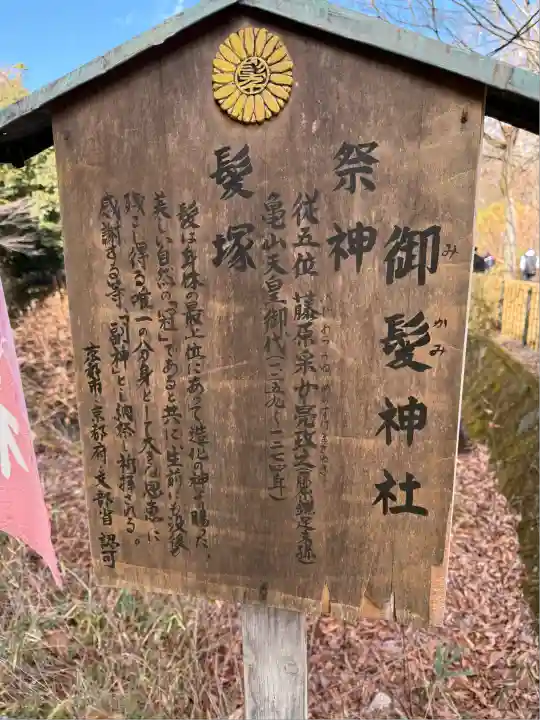 御髪神社
みかみ
祭神
従五位 藤原采女亮政之(藤原鎌足末孫)
亀山天皇御代(一二五九~一二七四年)
髪塚
髪は身体の最上位にあって造化の神より賜った、
美しい自然の「冠」であると共に生前にも没後
残こし得る唯一の分身として大きな恩恵に
感謝する等、「副神」とし納祭、祈拝される。
京都市 京都府 文部省 認可